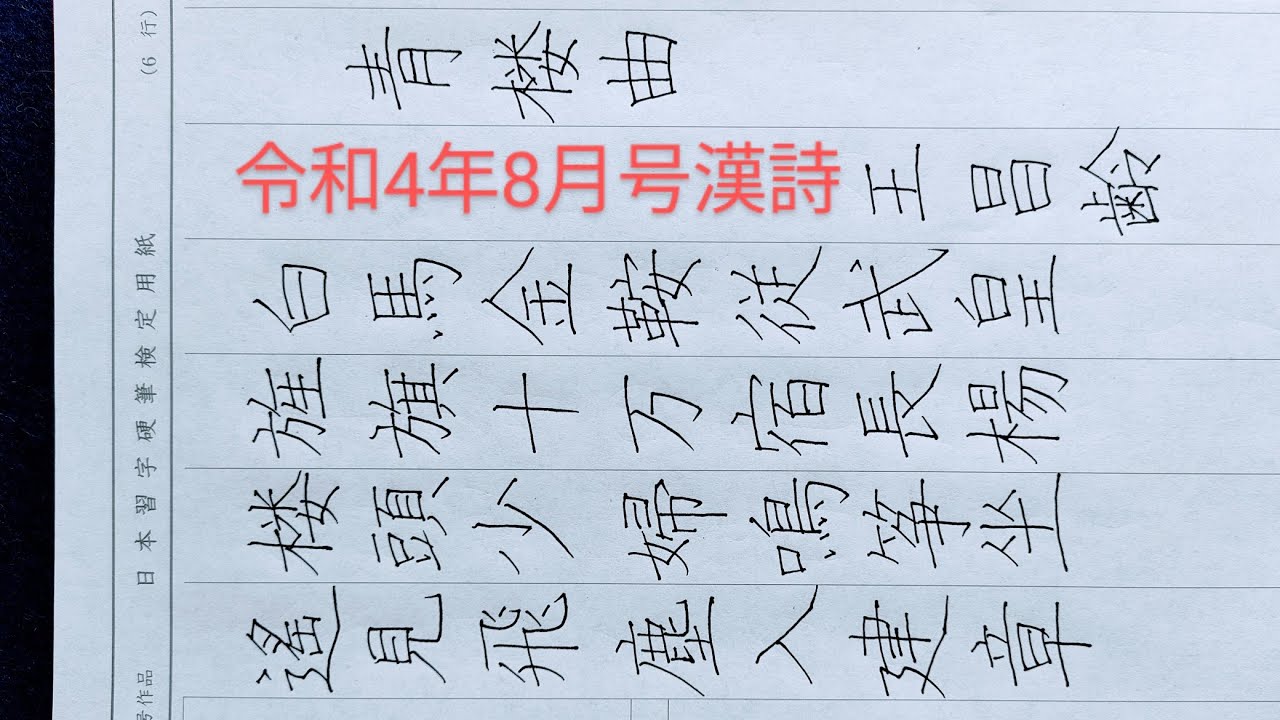 青楼曲
令和4年8月号漢詩
王昌齢
白馬金鞍従武皇
旌旗十万宿長楊
楼頭少婦鳴箏坐
遥見飛塵入建章
号作品 日本習字硬筆検定用紙 (6 行)